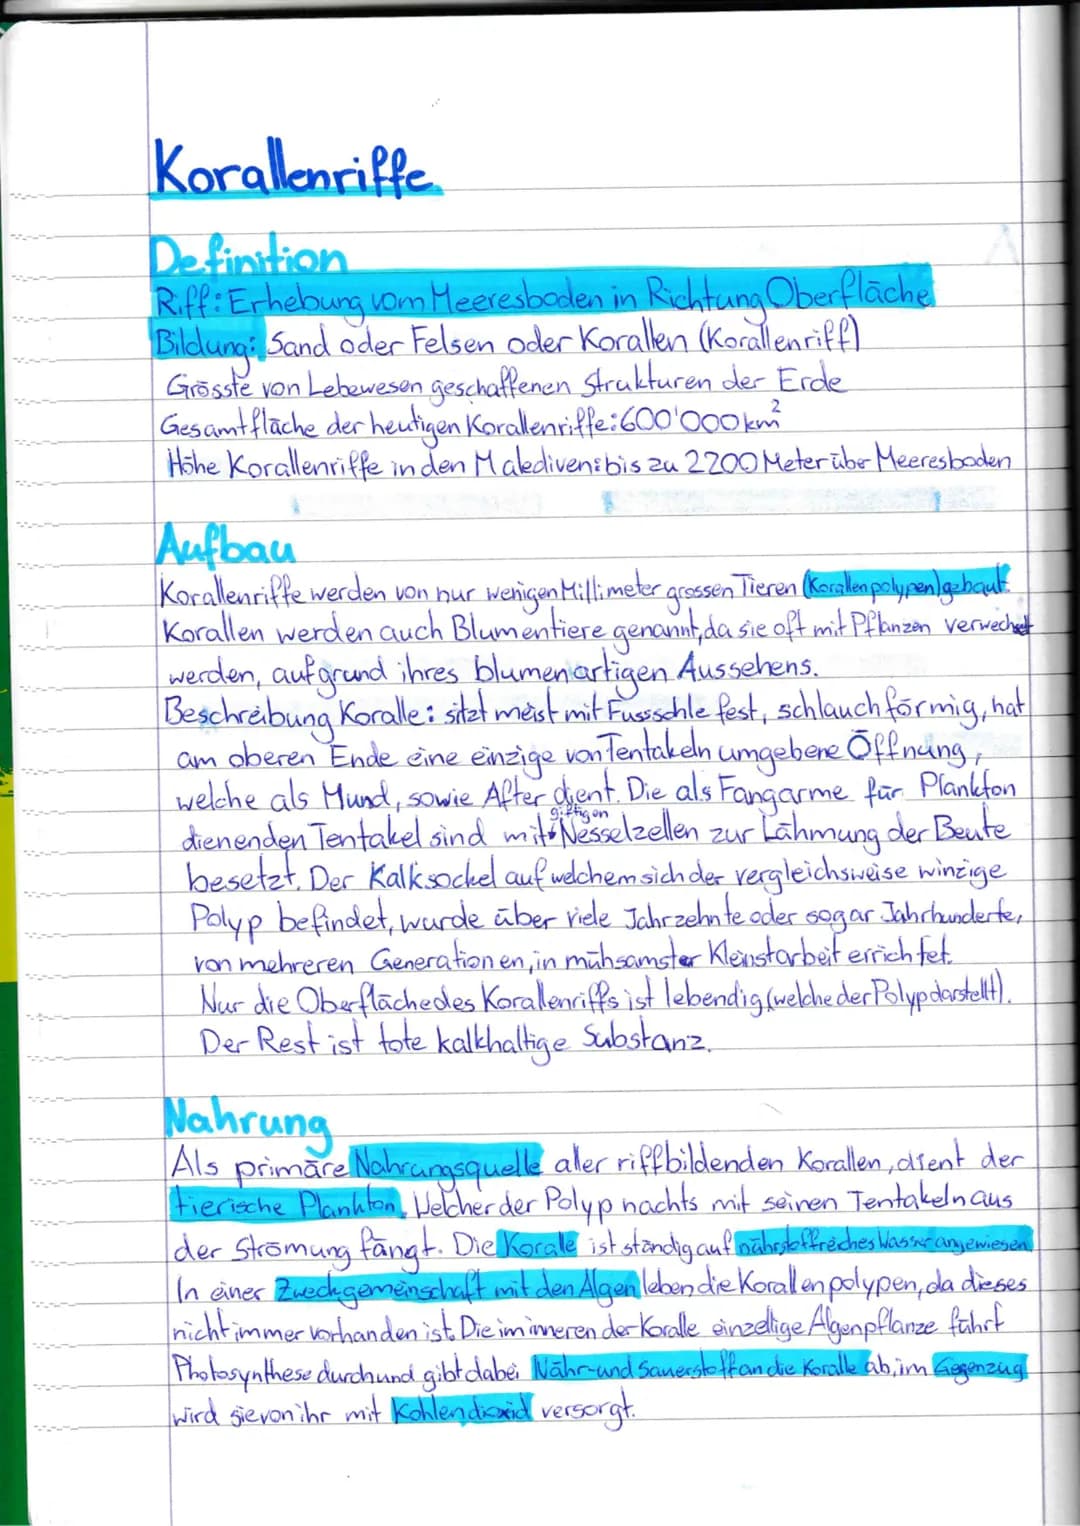 Korallenriffe
Definition
Riff: Erhebung vom Meeresboden in Richtung Oberfläche
Bildung: Sand oder Felsen oder Korallen (Korallenriff)
Grösste von Lebewesen geschaffenen Strukturen der Erde
Gesamtfläche der heutigen Korallenriffe: 600'000 km²
Höhe Korallenriffe in den Malediven: bis zu 2200 Meter über Meeresboden
Aufbau
Korallenriffe werden von nur wenigen Millimeter grossen Tieren (Korallenpolypen) gebaut.
Korallen werden auch Blumentiere genannt, da sie oft mit Pflanzen verwechselt
werden, aufgrund ihres blumenartigen Aussehens.
Beschreibung Koralle: sitzt meist mit Fussschle fest, schlauchförmig, hat
am oberen Ende eine einzige von Tentakeln umgebene Öffnung,
welche als Mund, sowie After dient. Die als Fangarme für Plankton
dienenden Tentakel sind mit giftigen Nesselzellen zur Lähmung der Beute
besetzt. Der Kalksockel auf welchem sich der vergleichsweise winzige
Polyp befindet, wurde über viele Jahrzehnte oder sogar Jahrhunderte,
von mehreren Generationen, in mühsamster Kleinstarbeit errichtet.
Nur die Oberfläche des Korallenriffs ist lebendig (welche der Polyp darstellt).
Der Rest ist tote kalkhaltige Substanz.
Nahrung
Als primäre Nahrungsquelle aller riffbildenden Korallen, dient der
tierische Plankton. Welcher der Polyp nachts mit seinen Tentakeln aus
der Strömung fängt. Die Korale ist ständig auf nährstoffreiches Wasser angewiesen.
In einer Zweckgemeinschaft mit den Algen leben die Korallenpolypen, da dieses
nicht immer vorhanden ist. Die im inneren der Koralle einzellige Algenpflanze führt
Photosynthese durch und gibt dabei Nähr- und Sauerstoff an die Koralle ab, im Gegenzug
wird sie von ihr mit Kohlendioxid versorgt.